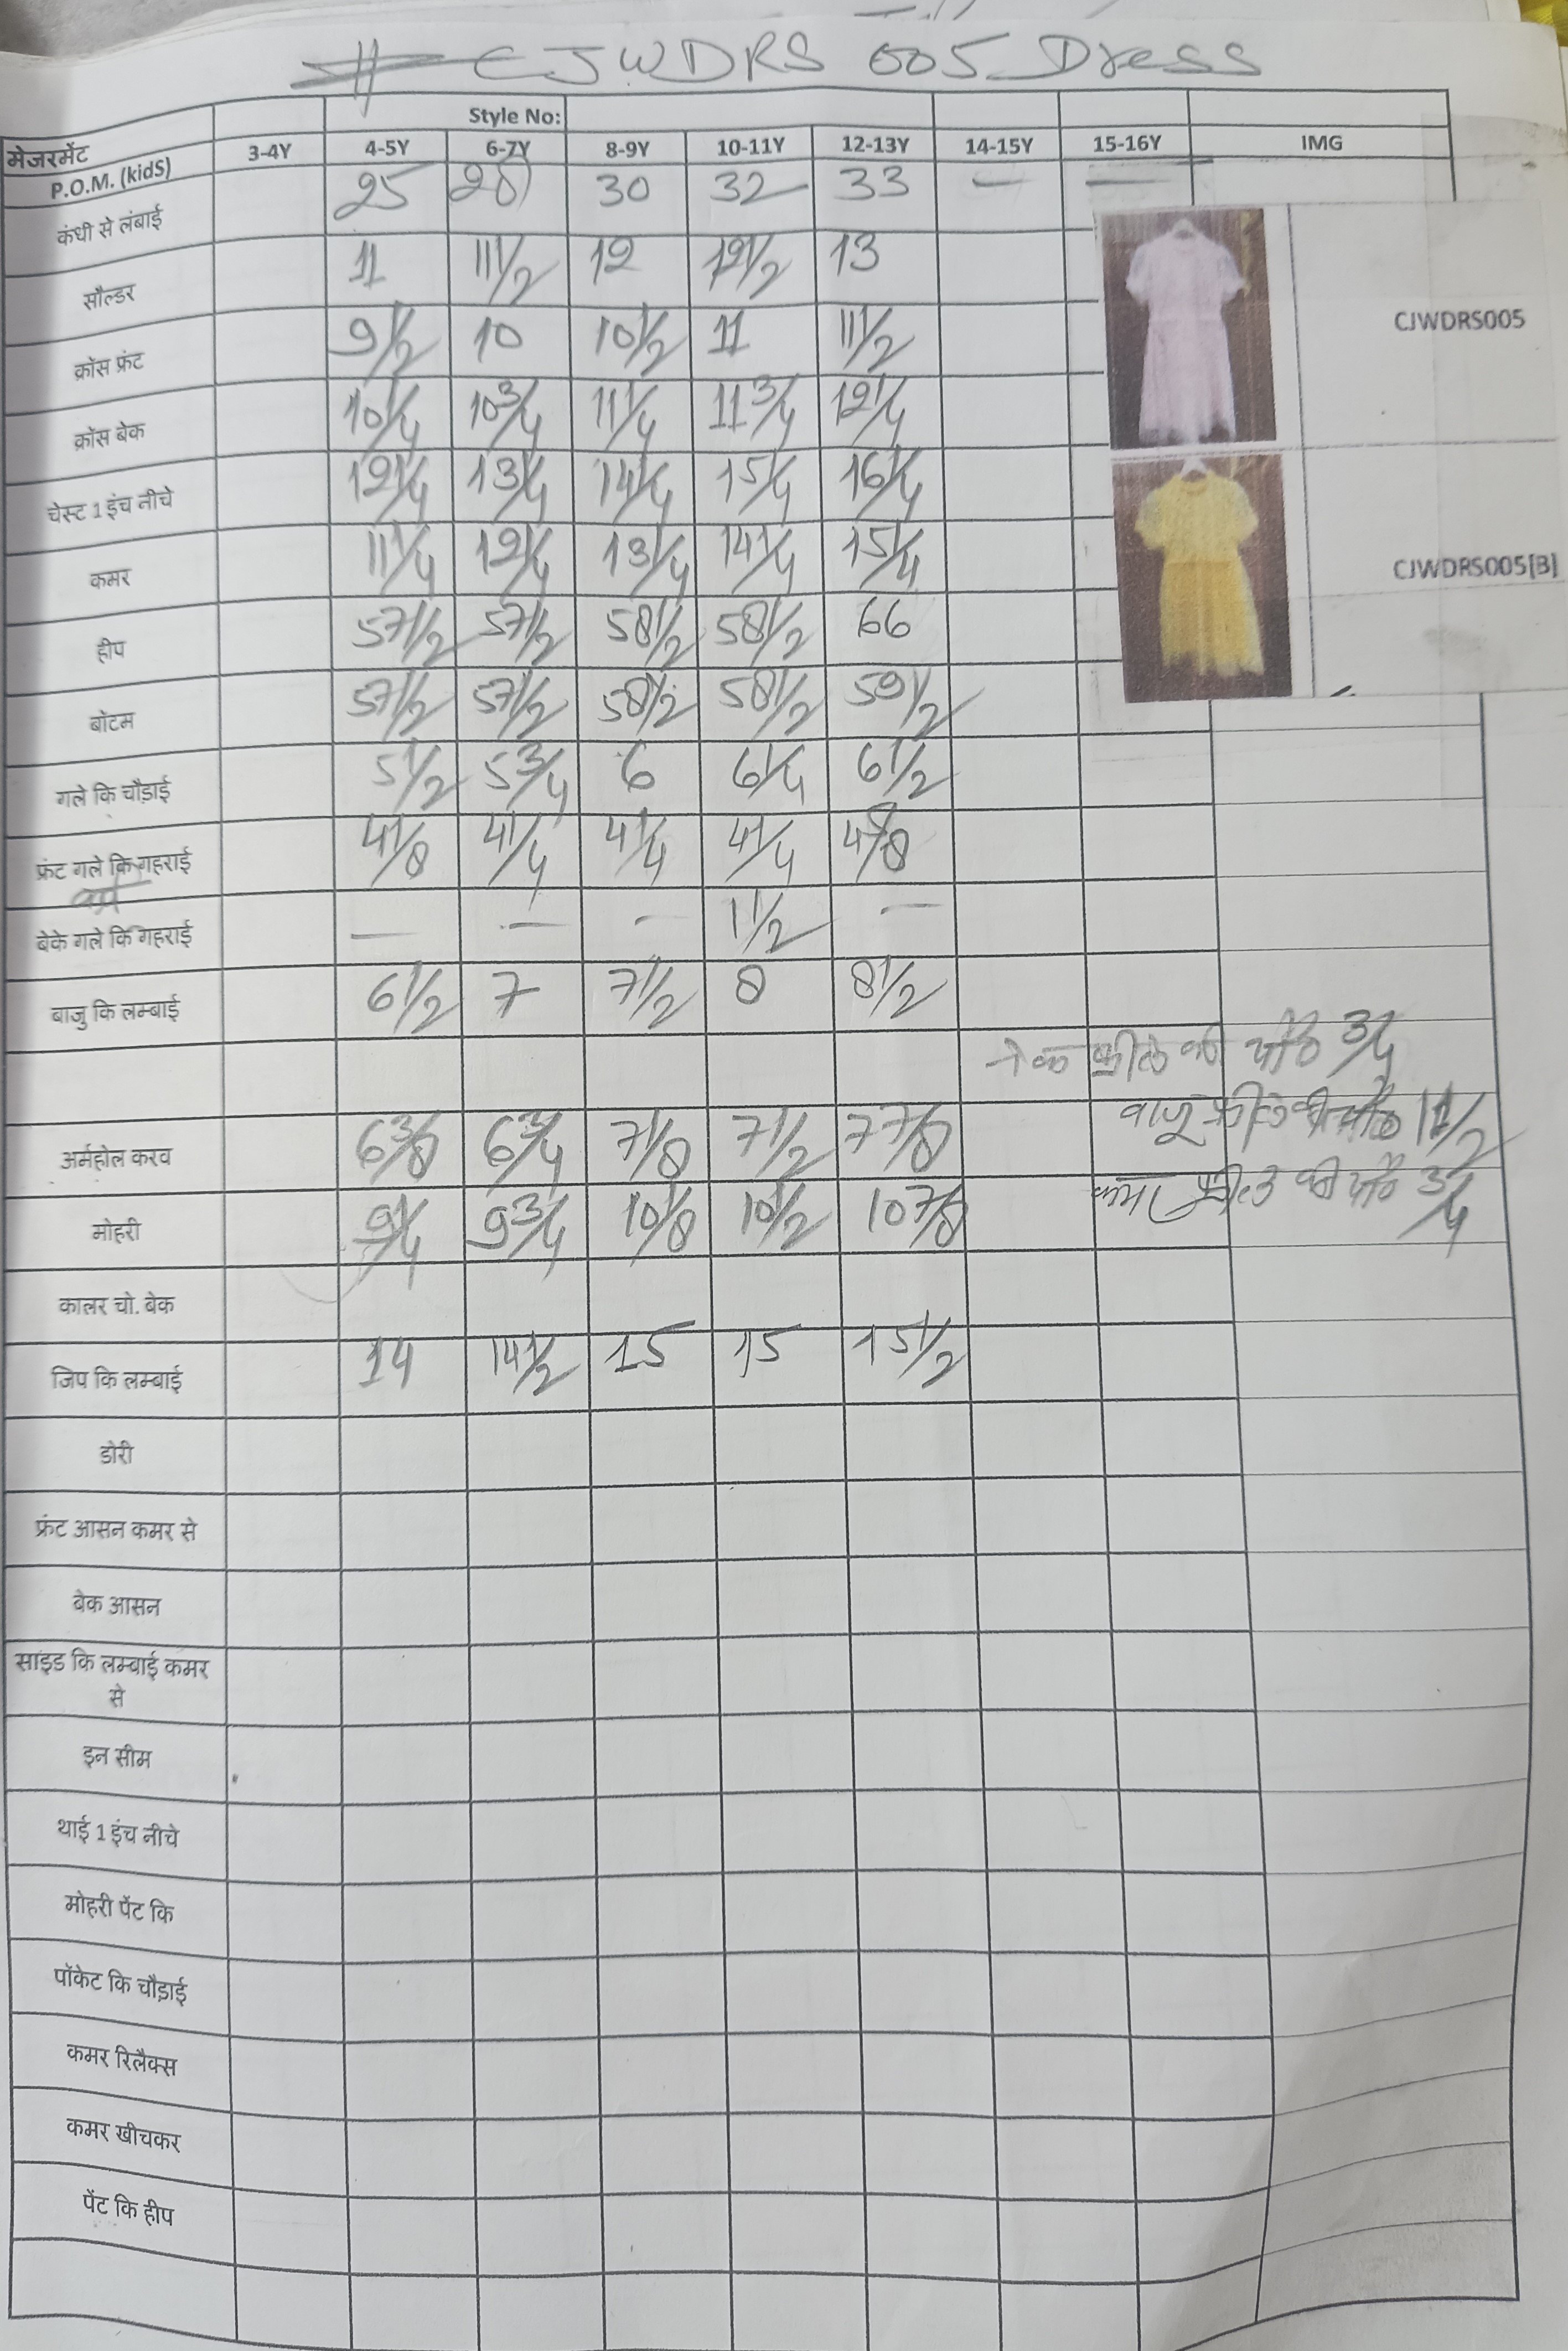 CJWDRS 005 Dress
Style No:
मेजरमेंट P.O.M. (kidS) 3-4Y 4-5Y 6-7Y 8-9Y 10-11Y 12-13Y 14-15Y 15-16Y IMG
कंधी से लंबाई 25 28 30 32 33 — —
सौल्डर 11 11 1/2 12 12 1/2 13
CJWDRS005
क्रॉस फ्रंट 9 1/2 10 10 1/2 11 11 1/2
क्रॉस बेक 10 1/4 10 3/4 11 1/4 11 3/4 12 1/4
चेस्ट 1 इंच नीचे 12 1/4 13 1/4 14 1/4 15 1/4 16 1/4
कमर 11 1/4 12 1/4 13 1/4 14 1/4 15 1/4
CJWDRS005[B]
हीप 57 1/2 57 1/2 58 1/2 58 1/2 66
बॉटम 57 1/2 57 1/2 58 1/2 58 1/2 59 1/2
गले कि चौड़ाई 5 1/2 5 3/4 6 6 1/4 6 1/2
फ्रंट गले कि गहराई 4 1/8 4 1/4 4 1/4 4 1/4 4
बेके गले कि गहराई — — — 1 1/2 —
बाजु कि लम्बाई 6 1/2 7 7 1/2 8 8 1/2
नेक फ्रील की चौ० 3/4
बाजू फ्रील की चौ० 1 1/2
अर्महोल करव 6 3/8 6 3/4 7 1/8 7 1/2 7 7/8
कमर फ्रील की चौ० 3/4
मोहरी 9 1/4 9 3/4 10 1/8 10 1/2 10 7/8
कालर चो. बेक
जिप कि लम्बाई 14 14 1/2 15 15 15 1/2
डोरी
फ्रंट आसन कमर से
बेक आसन
साइड कि लम्बाई कमर
से
इन सीम
थाई 1 इंच नीचे
मोहरी पेंट कि
पॉकेट कि चौड़ाई
कमर रिलैक्स
कमर खीचकर
पेंट कि हीप